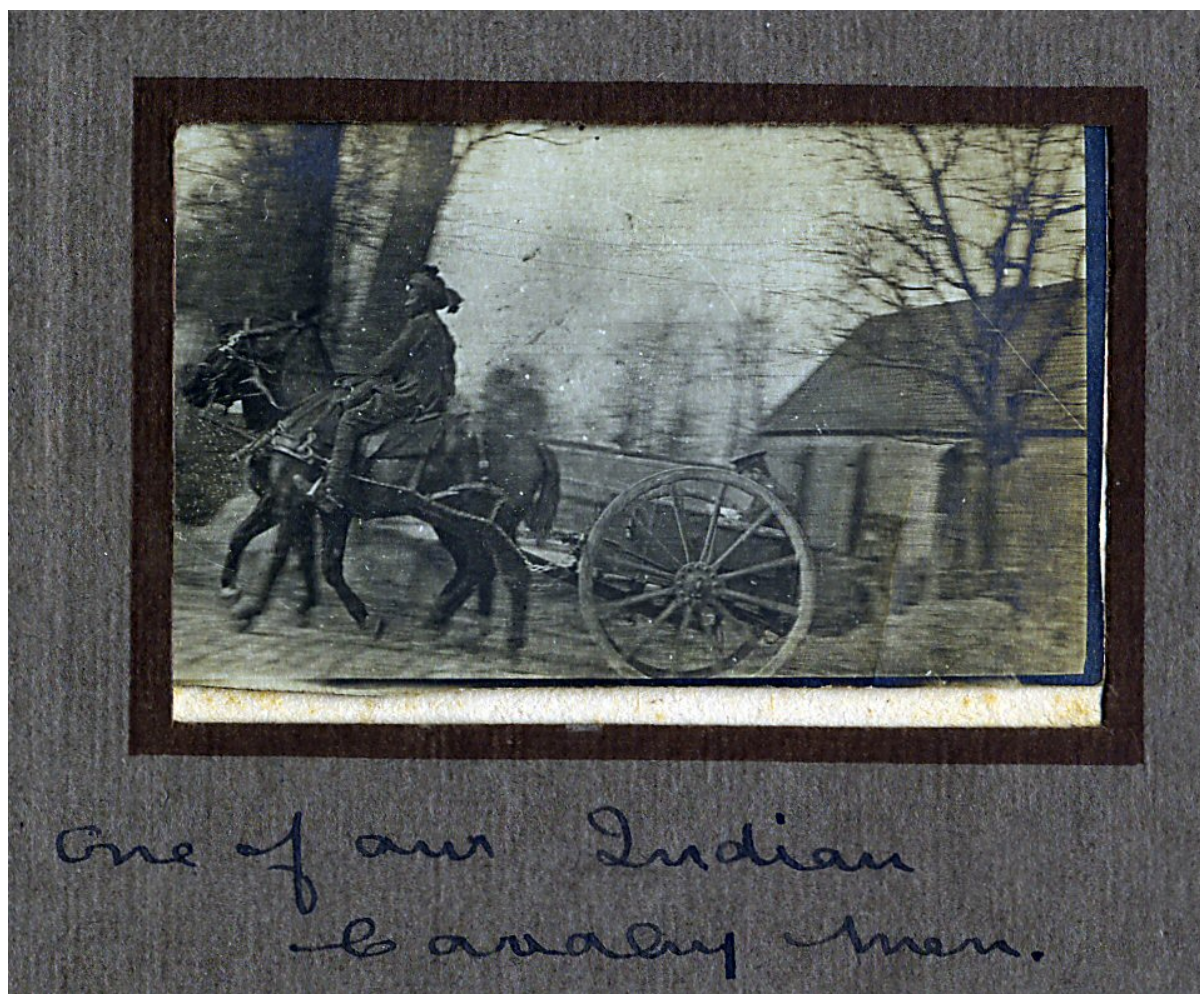 One of our Indian
Cavalry Men.